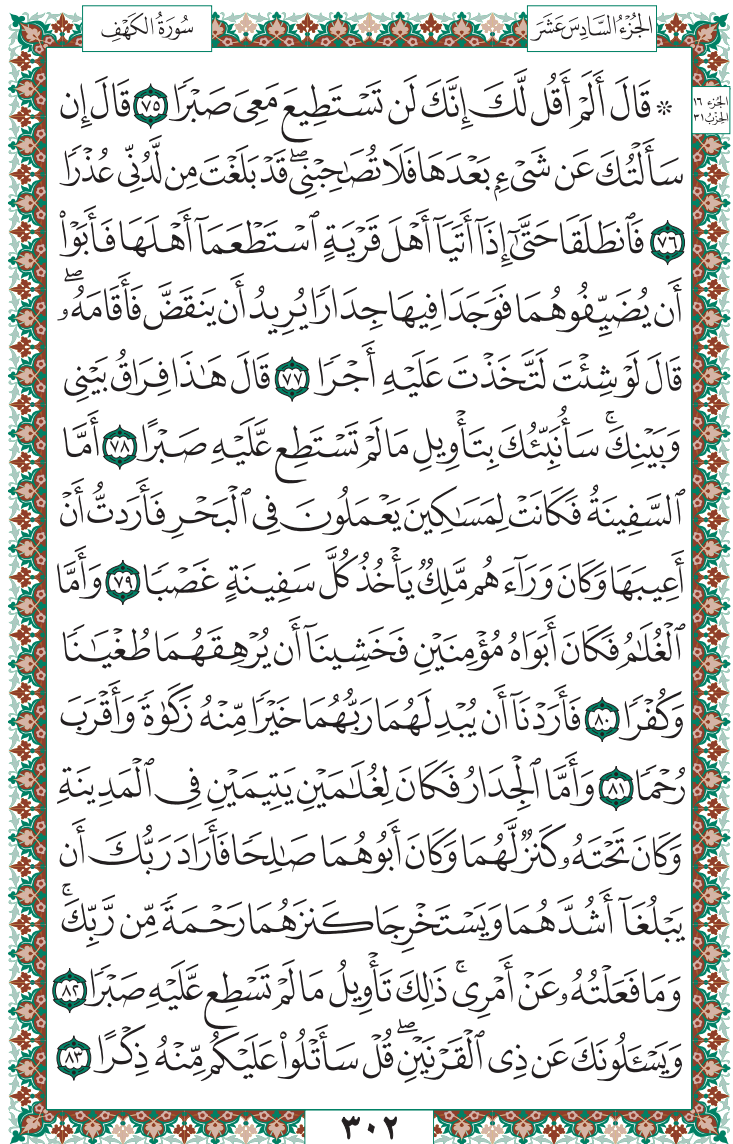 الجُزْءُ السَّادِسَ عَشَرَ
سُورَةُ الكَهْفِ
الجزء ١٦
الحِزْب ٣١
۞ قَالَ أَلَمْ أَقُل لَّكَ إِنَّكَ لَن تَسْتَطِيعَ مَعِىَ صَبْرًا ٧٥ قَالَ إِن
سَأَلْتُكَ عَن شَىْءٍۭ بَعْدَهَا فَلَا تُصَـٰحِبْنِى ۖ قَدْ بَلَغْتَ مِن لَّدُنِّى عُذْرًا
٧٦ فَٱنطَلَقَا حَتَّىٰٓ إِذَآ أَتَيَآ أَهْلَ قَرْيَةٍ ٱسْتَطْعَمَآ أَهْلَهَا فَأَبَوْا۟
أَن يُضَيِّفُوهُمَا فَوَجَدَا فِيهَا جِدَارًا يُرِيدُ أَن يَنقَضَّ فَأَقَامَهُۥ ۖ
قَالَ لَوْ شِئْتَ لَتَّخَذْتَ عَلَيْهِ أَجْرًا ٧٧ قَالَ هَـٰذَا فِرَاقُ بَيْنِى
وَبَيْنِكَ ۚ سَأُنَبِّئُكَ بِتَأْوِيلِ مَا لَمْ تَسْتَطِع عَّلَيْهِ صَبْرًا ٧٨ أَمَّا
ٱلسَّفِينَةُ فَكَانَتْ لِمَسَـٰكِينَ يَعْمَلُونَ فِى ٱلْبَحْرِ فَأَرَدتُّ أَنْ
أَعِيبَهَا وَكَانَ وَرَآءَهُم مَّلِكٌ يَأْخُذُ كُلَّ سَفِينَةٍ غَصْبًا ٧٩ وَأَمَّا
ٱلْغُلَـٰمُ فَكَانَ أَبَوَاهُ مُؤْمِنَيْنِ فَخَشِينَآ أَن يُرْهِقَهُمَا طُغْيَـٰنًا
وَكُفْرًا ٨٠ فَأَرَدْنَآ أَن يُبْدِلَهُمَا رَبُّهُمَا خَيْرًا مِّنْهُ زَكَوٰةً وَأَقْرَبَ
رُحْمًا ٨١ وَأَمَّا ٱلْجِدَارُ فَكَانَ لِغُلَـٰمَيْنِ يَتِيمَيْنِ فِى ٱلْمَدِينَةِ
وَكَانَ تَحْتَهُۥ كَنزٌ لَّهُمَا وَكَانَ أَبُوهُمَا صَـٰلِحًا فَأَرَادَ رَبُّكَ أَن
يَبْلُغَآ أَشُدَّهُمَا وَيَسْتَخْرِجَا كَنزَهُمَا رَحْمَةً مِّن رَّبِّكَ ۚ
وَمَا فَعَلْتُهُۥ عَنْ أَمْرِى ۚ ذَٰلِكَ تَأْوِيلُ مَا لَمْ تَسْطِع عَّلَيْهِ صَبْرًا ٨٢
وَيَسْـَٔلُونَكَ عَن ذِى ٱلْقَرْنَيْنِ ۖ قُلْ سَأَتْلُوا۟ عَلَيْكُم مِّنْهُ ذِكْرًا ٨٣
٣٠٢